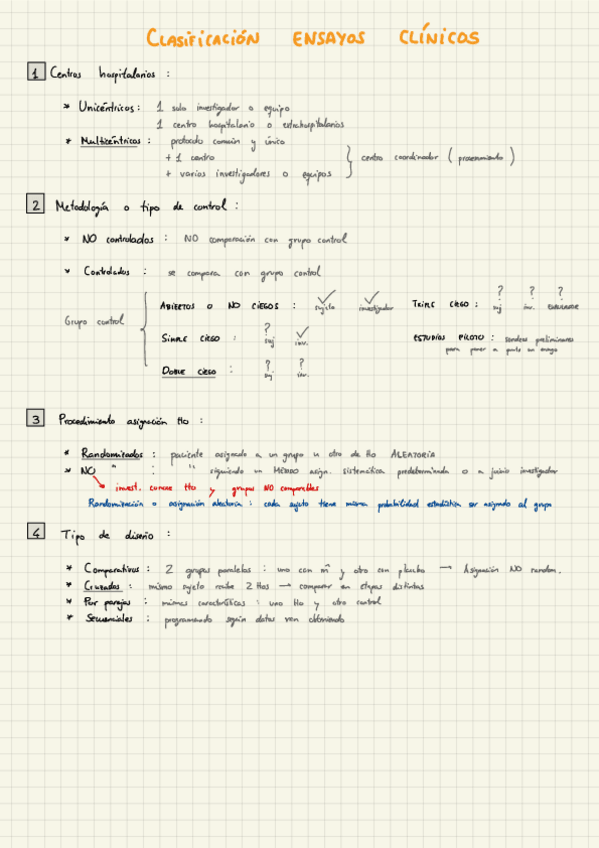 CLASIFICACIÓN ENSAYOS CLÍNICOS
1 Centros hospitalarios :
* Unicéntricos : 1 solo investigador o equipo
1 centro hospitalario o extrahospitalarios
* Multicéntricos : protocolo común y único
+ 1 centro
+ varios investigadores o equipos
} centro coordinador ( procesamiento )
2 Metodología o tipo de control :
* NO controlados : NO comparación con grupo control
* Controlados : se compara con grupo control
Grupo control {
ABIERTOS O NO CIEGOS : ✓ sujeto ✓ investigador
SIMPLE CIEGO : ? suj ✓ inv.
DOBLE CIEGO : ? suj ? inv.
TRIPLE CIEGO : ? suj ? inv. ? EVALUADOR
ESTUDIOS PILOTO : sondeos preliminares
para poner a punto un ensayo
3 Procedimiento asignación tto :
* Randomizados : paciente asignado a un grupo u otro de tto ALEATORIA
* NO " : " siguiendo un MÉTODO asign. sistemática predeterminada o a juicio investigador
invest. conoce tto y grupos NO comparables
Randomización o asignación aleatoria : cada sujeto tiene misma probabilidad estadística ser asignado al grupo
4 Tipo de diseño :
* Comparativos : 2 grupos paralelos : uno con m̃ y otro con placebo → Asignación NO random.
* Cruzados : mismo sujeto recibe 2 ttos → comparar en etapas distintas
* Por parejas : mismas características : uno tto y otro control
* Secuenciales : programando según datos van obteniendo